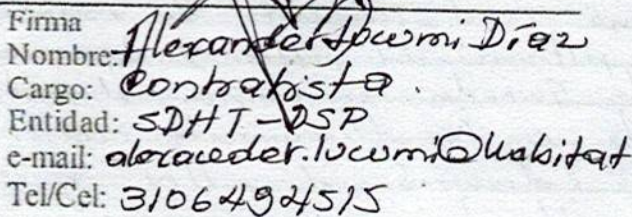 Firma
Nombre: Alexander Lucumi Díaz
Cargo: Contratista.
Entidad: SDHT-DSP
e-mail: alexander.lucumi@habitat
Tel/Cel: 3106494515